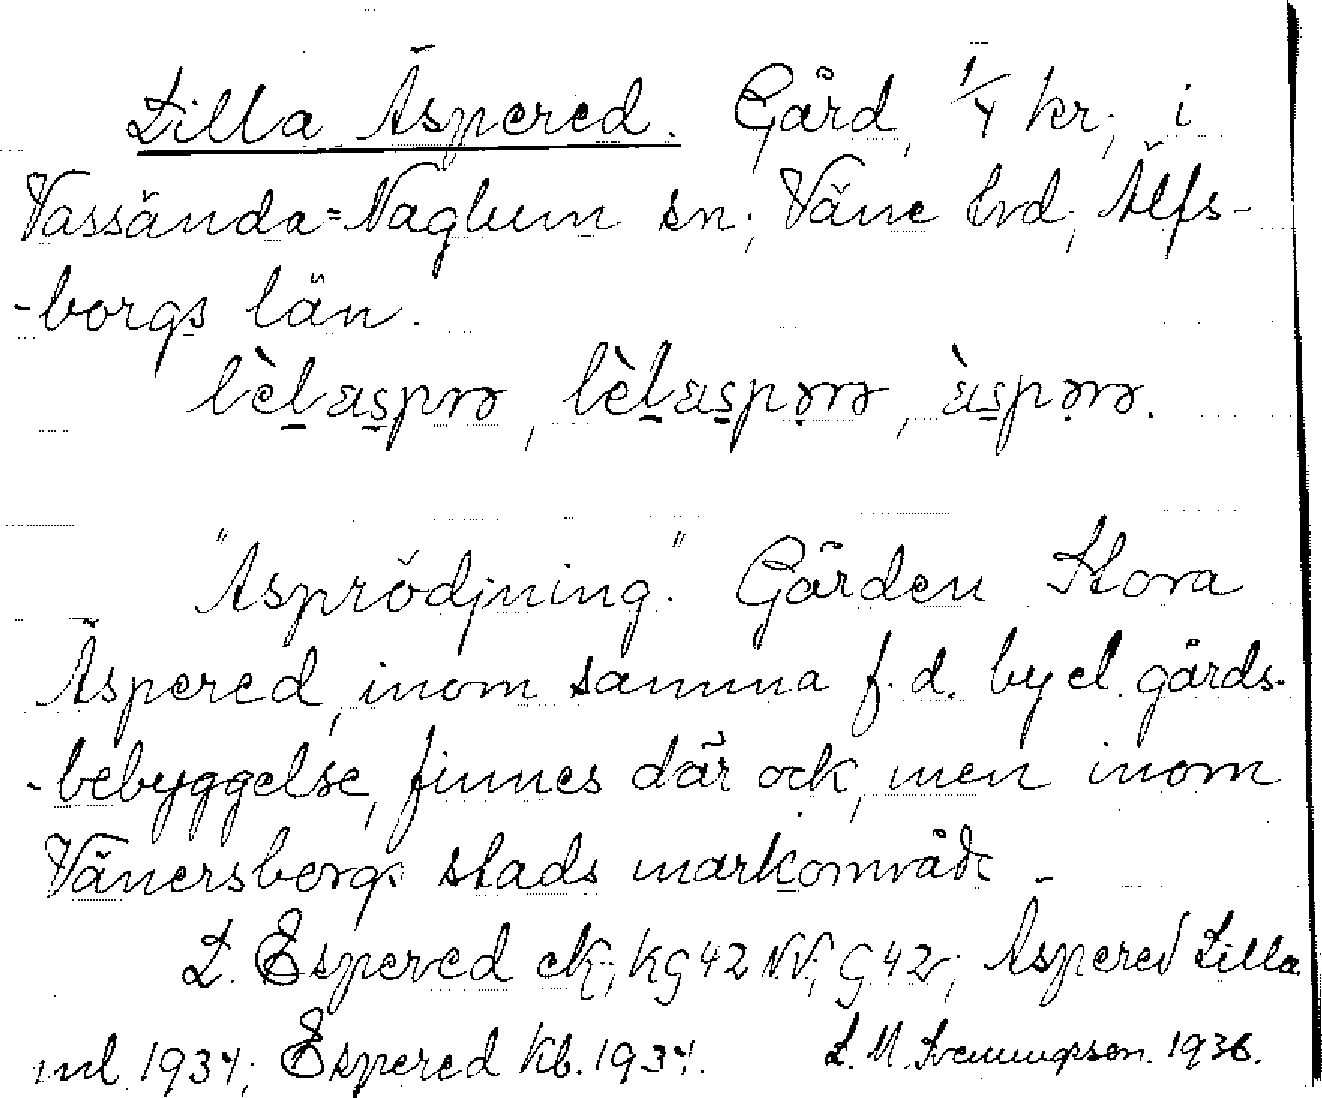 Lilla Äspered. Gård, 1/4 kr., i
Vassända=Naglum sn; Väne hrd; Älfs-
-borgs län.
"Asprödjning." Gården Stora
Äspered, inom samma f.d. by el. gårds-
-bebyggelse, finnes där ock, men inom
Vänersborgs stads markområde -
L. Espered ek; KG 42 NV; G 42v; Äspered Lilla
ml 1934; Espered Kb. 1934. L. M. Svenungsson. 1936.